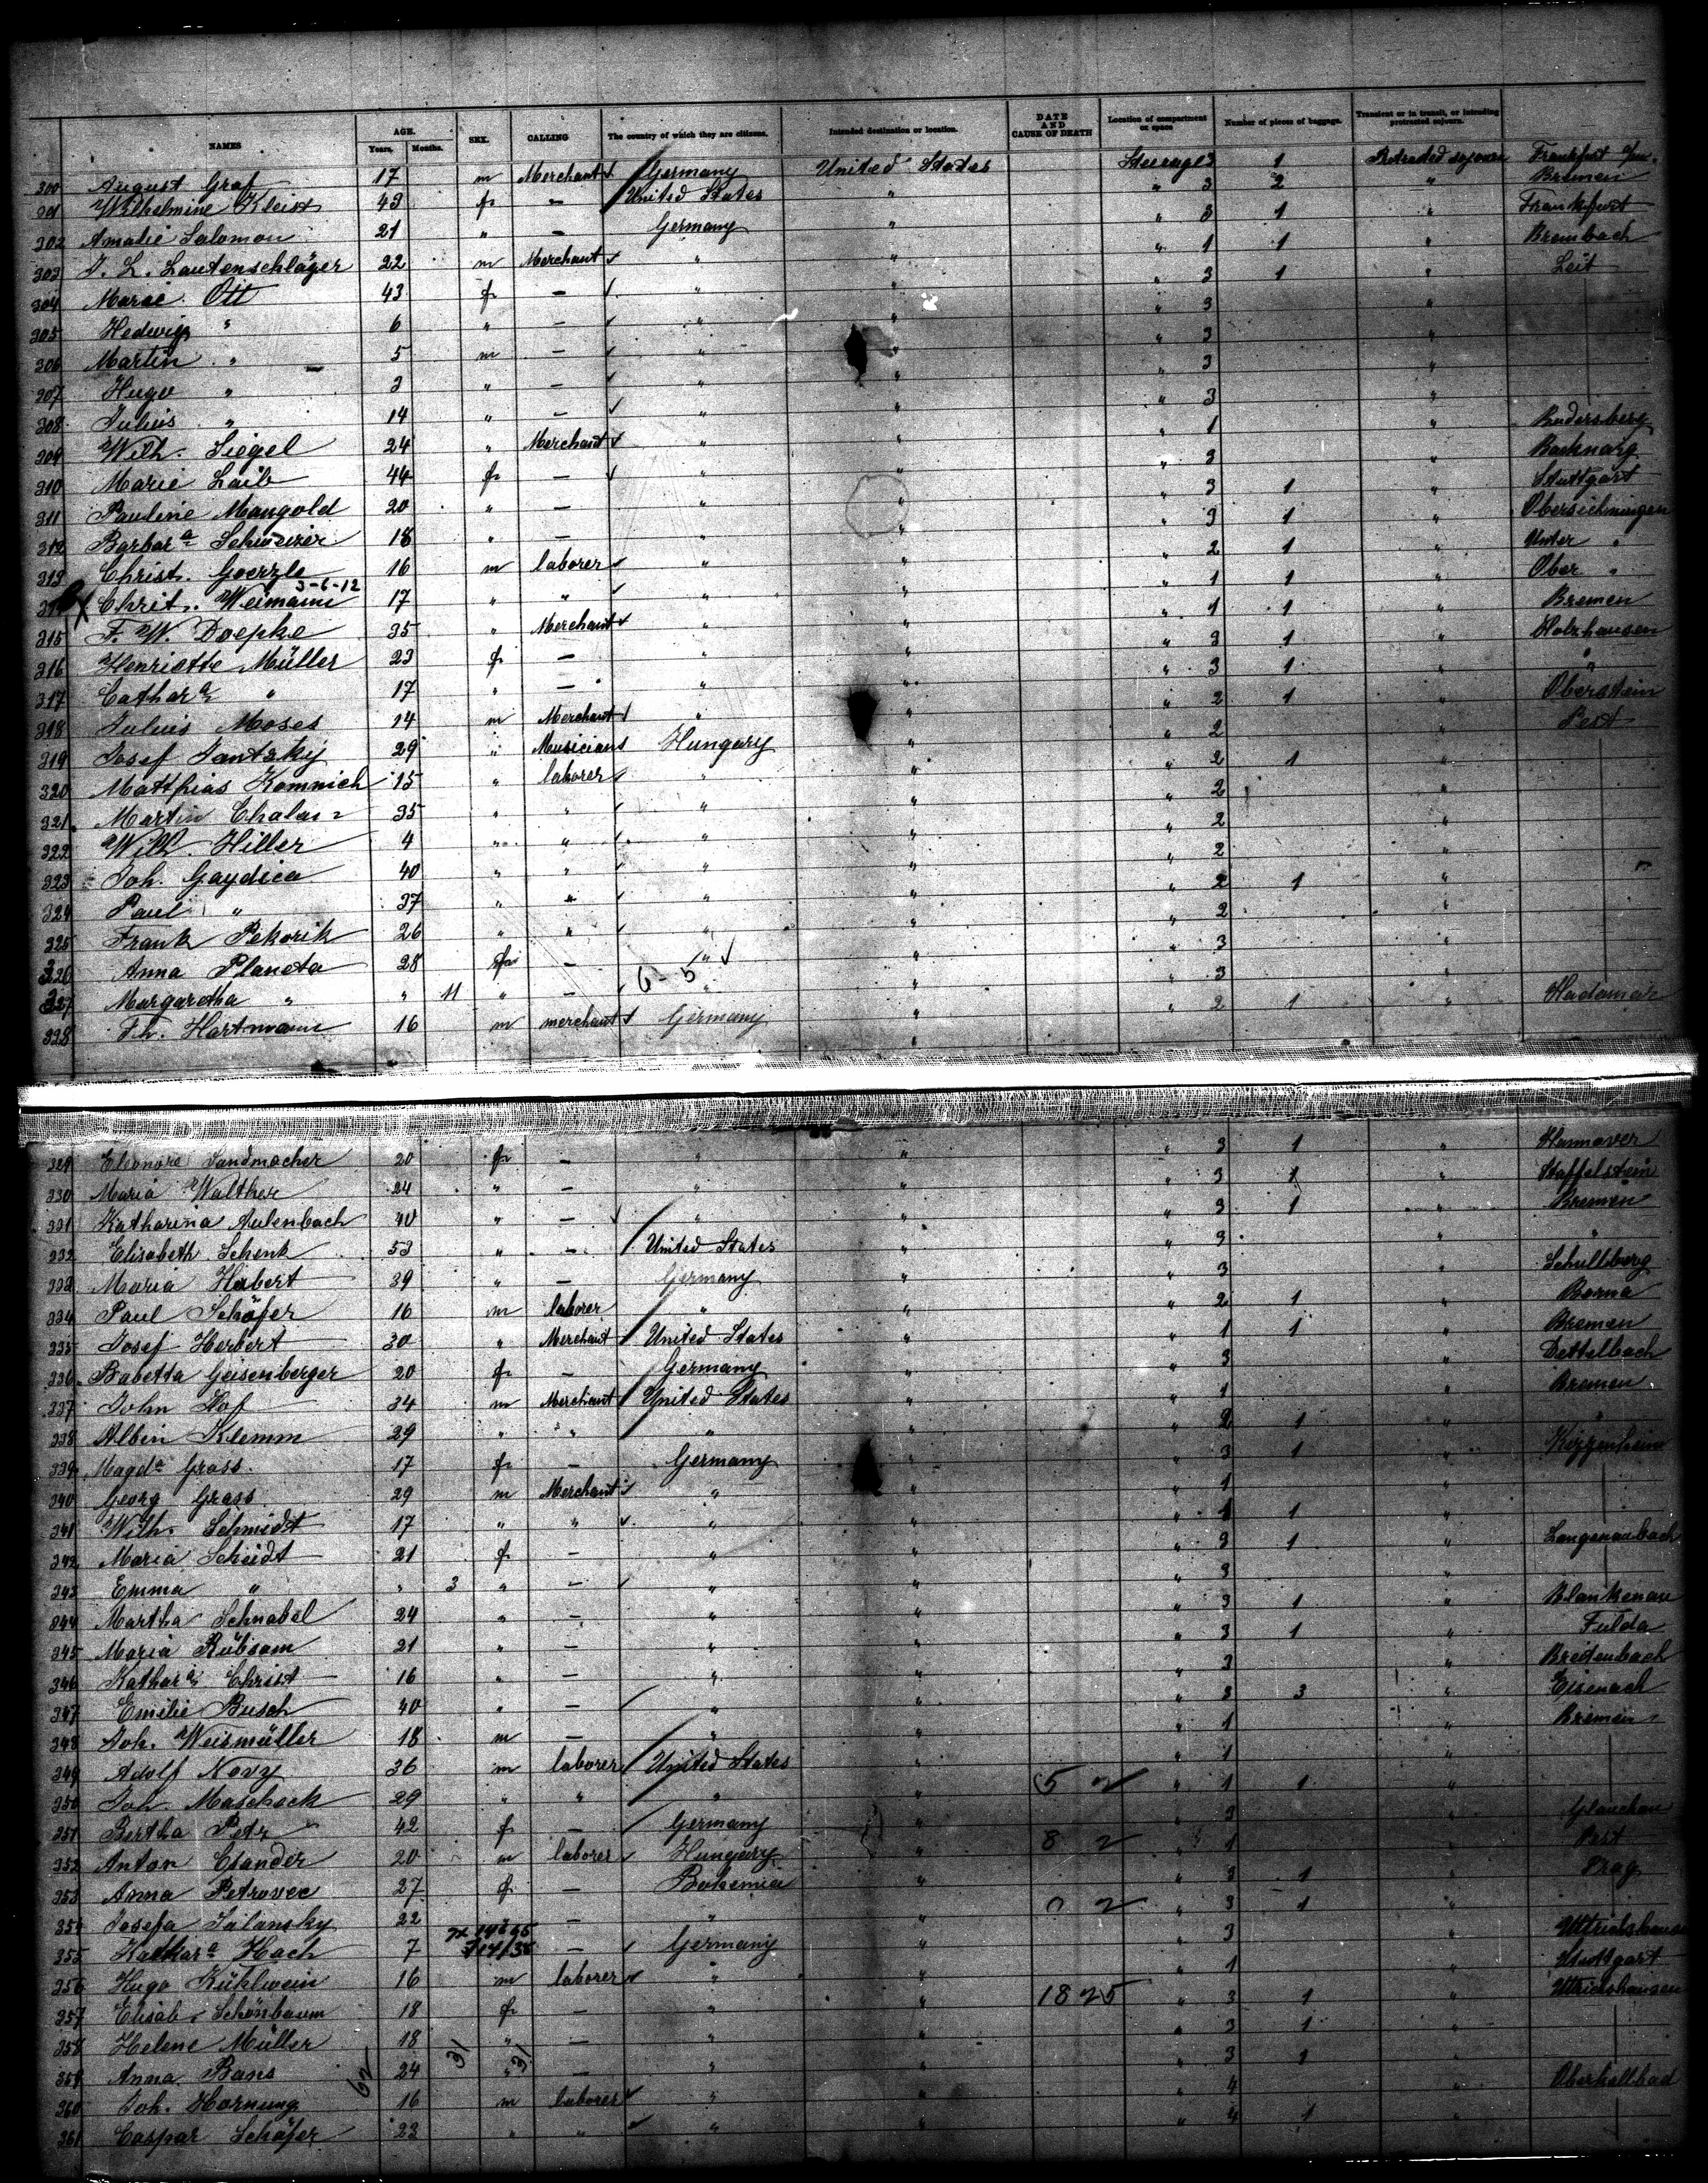 NAMES AGE. Years. Months. SEX. CALLING The country of which they are citizens. Intended destination or location. DATE AND CAUSE OF DEATH Location of compartment or space Number of pieces of baggage. Transient or in transit, or intending protracted sojourn.
300 August Graf 17 m Merchant Germany United States Steerage 3 1 Protracted sojourn Frankfurt
301 Wilhelmine Kleist 43 f — United States " " 3 2 " Bremen
302 Amalie Salomon 21 " — Germany " " 3 1 " Frankfurt
303 J. L. Lautenschläger 22 m Merchant " " " 1 1 " Brembach
304 Marie Ott 43 f — " " " 3 1 " Leit
305 Hedwig " 6 " — " " " 3 "
306 Martin " 5 m — " " " 3 "
307 Hugo " 3 " — " " " 3 "
308 Julius " 14 " — " " " 3 "
309 Wilh. Siegel 24 " Merchant " " " 1 " Rudersberg
310 Marie Laib 44 f — " " " 3 " Backnang
311 Pauline Mangold 20 " — " " " 3 1 " Stuttgart
312 Barbara Schweizer 18 " — " " " 3 1 " Obersielmingen
313 Christ. Goerzle 16 m laborer " " " 2 1 " Unter "
3-6-12
314 Christ. Weimann 17 " " " " " 1 1 " Ober "
315 F. W. Doepke 35 " Merchant " " " 1 1 " Bremen
316 Henriette Müller 23 f — " " " 3 1 " Holzhausen
317 Cathara " 17 " — " " " 3 1 " "
318 Julius Moses 14 m Merchant " " " 2 1 " Oberstein
319 Josef Jantzky 29 " Musician Hungary " " 2 " Pest
320 Matthias Komnich 15 " laborer " " " 2 1 "
321 Martin 35 " " " " " 2 "
322 Wilh. Hiller 4 " " " " " 2 "
323 Joh. Gaydica 40 " " " " " 2 "
324 Paul " 37 " " " " " 2 1 "
325 Frank Pekorik 26 " " " " " 2 "
326 Anna Planeta 28 f — " " " 3 "
6-5
327 Margaretha " " 11 " — " " " 3 "
328 Th. Hartmann 16 m merchant Germany " " 2 1 " Hadamar
329 Eleonore Sandmacher 20 f — " " " 3 1 " Hannover
330 Maria Walther 24 " — " " " 3 1 " Staffelstein
331 Katharina Aulenbach 40 " — " " " 3 1 " Bremen
332 Elisabeth Schenk 53 " — United States " " 3 " "
333 Maria Habert 39 " — Germany " " 3 "
334 Paul Schäfer 16 m laborer " " " 2 1 " Borna
335 Josef Herbert 30 " Merchant United States " " 1 1 " Bremen
336 Babetta Geisenberger 20 f — Germany " " 3 " Dettelbach
337 John Hof 34 m Merchant United States " " 1 " Bremen
338 Albin Klemm 29 " " " " " 2 1 " "
339 Magda Grass 17 f — Germany " " 3 1 "
340 Georg Grass 29 m Merchant " " " 1 "
341 Wilh. Schmidt 17 " " " " " 1 1 "
342 Maria Scheidt 21 f — " " " 3 1 " Langenaubach
343 Emma " " 3 " — " " " 3 "
344 Martha Schnabel 24 " — " " " 3 1 " Blankenau
345 Maria Rübsam 21 " — " " " 3 1 " Fulda
346 Kathara Christ 16 " — " " " 3 " Breitenbach
347 Emilie Busch 40 " — " " " 3 3 " Eisenach
348 Joh. Weismüller 18 m — " " " 1 " Bremen
349 Adolf Novy 36 m laborer United States " " 1 "
350 Joh. Maschack 29 " " " " 5 2 " 1 1 "
351 Bertha Petz 42 f — Germany " " 3 " Glauchau
352 Anton Csander 20 m laborer Hungary " 8 2 " 1 " Pest
353 Anna Petrovec 27 f — Bohemia " " 3 1 " Prag
354 Josefa 22 — " " 0 2 " 3 1 "
355 Kathara Hach 7 — Germany " " 3 " Uttrichshausen
356 Hugo Kühlwein 16 m laborer " " " 1 " Stuttgart
357 Elisab. Schönbaum 18 f — " " 1825 " 3 1 " Uttrichshausen
358 Helene Müller 18 " — " " " 3 1 "
359 Anna Bans 24 31 " 31 — " " " 3 1 "
360 Joh. Hornung 16 m laborer " " " 4 " Oberkallbach
361 Caspar Schäfer 23 " " " " " 4 1 "